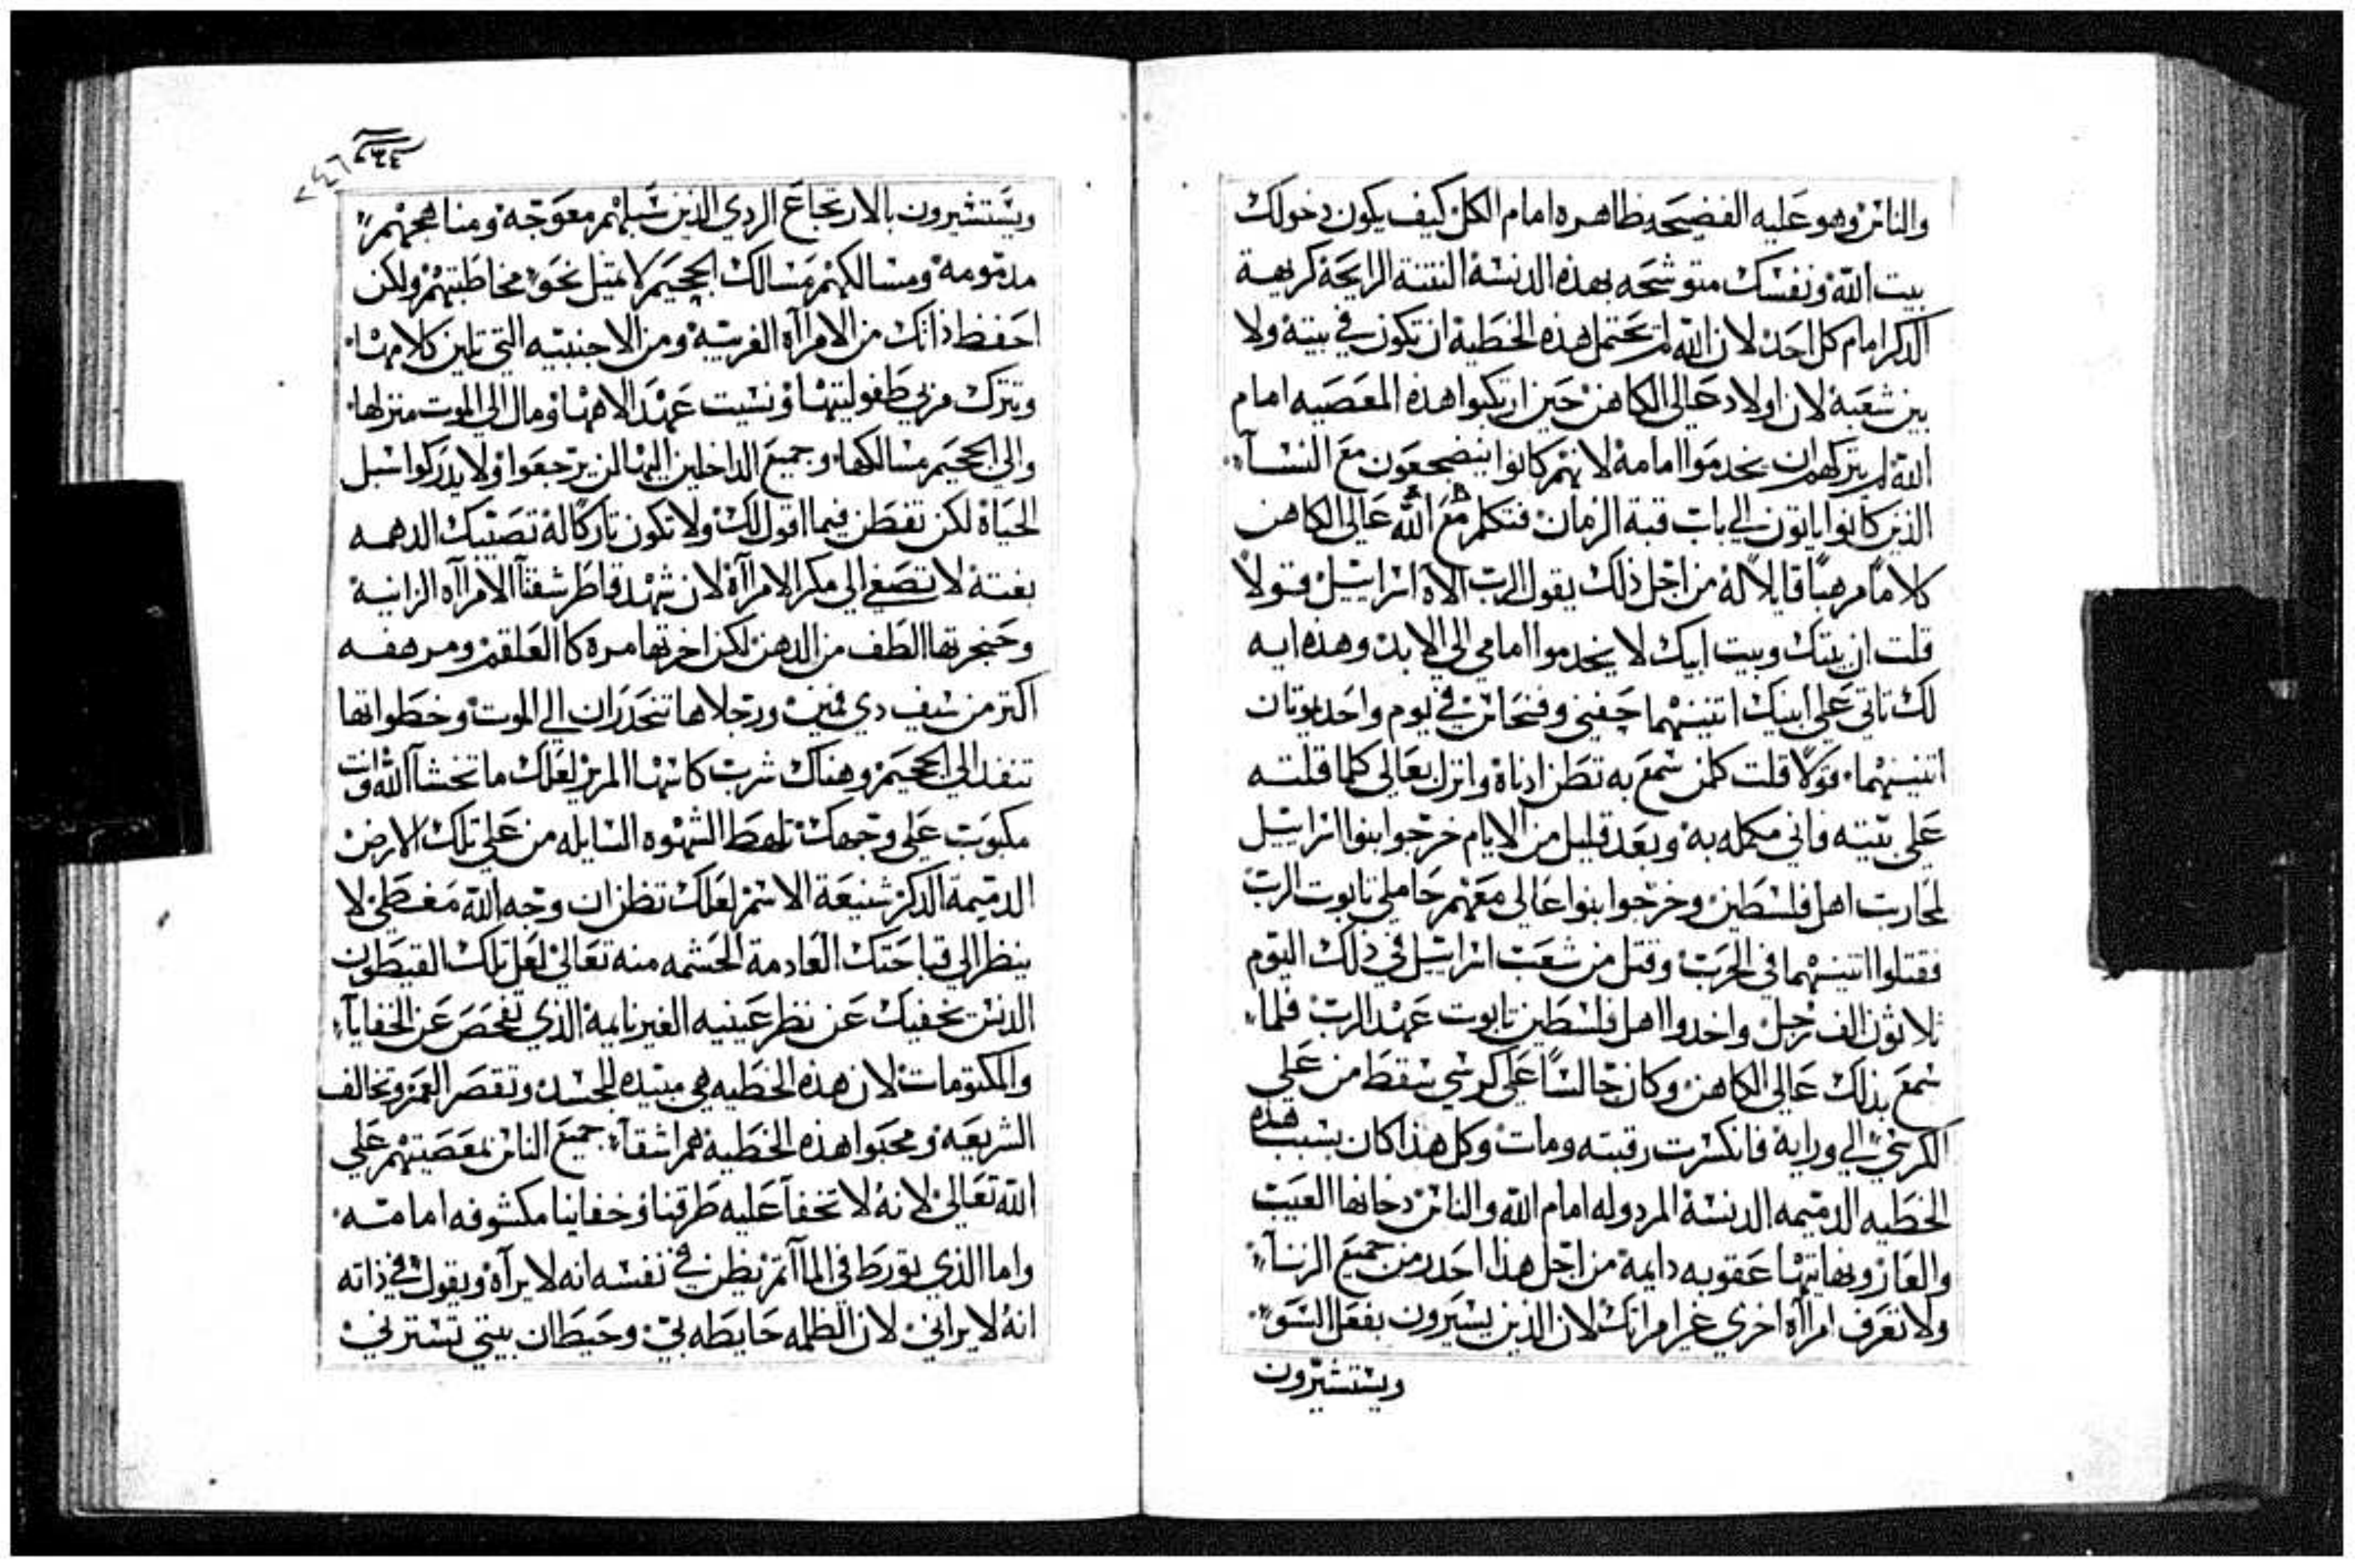 والناس وهو عليه الفضيحه ظاهره امام الكل كيف يكون دخولك
بيت الله ونفسك متوشحه بهذه الدنسة النتنة الرايحة كريهة
الدكر امام كل احد لان الله لم يحتمل هذه الخطية ان تكون في بيته ولا
بين شعبة لان اولاد عالي الكاهن حين ارتكبوا هذه المعصيه امام
الله لم يتركهم ان يخدموا امامة لانهم كانوا ينضجعون مع النسآ
الذين كانوا ياتون الي باب قبة الزمان فتكلم مع الله عالي الكاهن
كلاماً مرهباً قايلاً له من اجل ذلك يقول الرب الاة اسراييل قولاً
قلت ان بيتك وبيت ابيك لا يخدموا امامي الي الابد وهذه ايه
لك تاتي علي ابنيك اتنينهما حفني وفنحاس في يوم واحد يوتان
اتنينهما قولا قلت كلمن سمع به تطن ادناة وانزل بعالي كلما قلته
علي بيته فاني مكمله به وبعد قليل من الايام خرجوا بنوا اسراييل
لمحاربت اهل فلسطين وخرجوا بنوا عالي معهم حاملي تابوت الرب
فقتلوا اتنينهما في الحرب وقتل من شعب اسراييل في ذلك اليوم
ثلاثون الف رجل واخدوا اهل فلسطين تابوت عهد الرب فلما
سمع بذلك عالي الكاهن وكان جالساً علي كرسي سقط من علي
الكرسي الي وراية فانكسرت رقبته ومات وكل هذا كان بسبب هذه
الخطيه الدميمه الدنسة المردوله امام الله والناس دخانها العيب
والعار ونهايتها عقوبه دايمة من اجل هذا احدر من جميع الزنآ
ولا تعرف امرآة اخري غير امراتك لان الذين يسيرون بفعل السو
ويستشيرون
٢٤٦
ويستشيرون بالارتجاع الردي الذين سبلهم معوجة ومناهجهم
مدمومة ومسالكهم مسالك الجحيم لا تميل نحو مخاطبتهم ولكن
احفظ ذاتك من الامرآة الغريبة ومن الاجنبيه التي تلين كلامها
وتترك مربي طفوليتها ونسيت عهد الاهها ومال الي الموت منزلها
والي الجحيم مسالكها وجميع الداخلين اليها لن يرجعوا ولا يدركوا سبل
الحياة لكن تفطن فيما اقول لك ولا تكون تاركاً لة تصيبك الدهمه
بغتة لا تصغي الي مكر الامرآة لان شهد قاطر شفتآ الامرآه الزانية
وحنجرتها الطف من الدهن لكن اخرتها مرة كا العلقم ومرهفه
اكتر من سيف دي فمين ورجلاها تنحدران الي الموت وخطواتها
تنفد الي الجحيم وهناك شرب كاسها المر لعلك ما تخشا الله وانت
مكبوب علي وجهك تلهط الشهوه السايله من علي تلك الارض
الدميمة الدكر شنيعة الاسم لعلك تظن ان وجه الله مغطي لا
ينظر الي قباحتك العادمة الحشمه منه تعالي لعل تلك القيطون
الدنس تخفيك عن نظر عينيه الغير نايمة الذي تفحص عن الخفايآ
والمكتومات لان هذه الخطيه هي مبيده للجسد وتقصر العمر وتخالف
الشريعه ومحبوا هذه الخطية هم اشقآ جميع الناس بمعصيتهم علي
الله تعالي لانة لا تخفا عليه طرقنا وخفايانا مكشوفه امامته
واما الذي يتورط في المآتم يظن في نفسه انه لا يرآة ويقول في ذاته
انة لا يراني لان الظلمه حايطه بي وحيطان بيتي تسترني